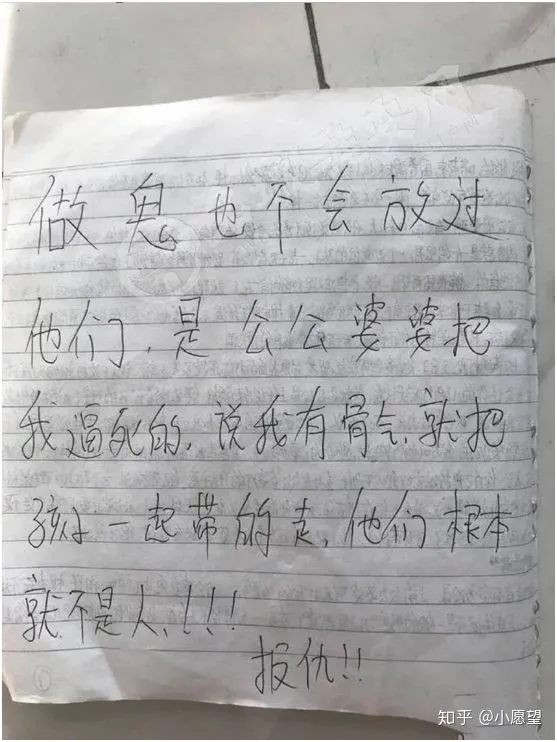 做鬼也个会放过
他们，是公公婆婆把
我逼死的，说我有骨气，就把
孩子一起带的走，他们根本
就不是人，！！！
报仇！！
知乎 @小愿望